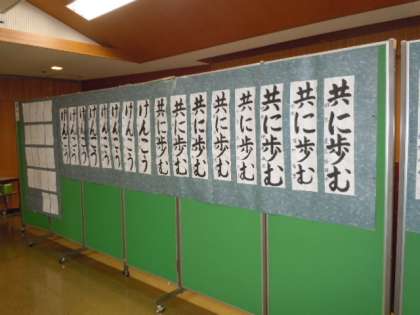 共に歩む
共に歩む
共に歩む
共に歩む
共に歩む
共に歩む
共に歩む
共に歩む
けんこう
けんこう
けんこう
けんこう
けんこう
けんこう
けんこう
けんこう